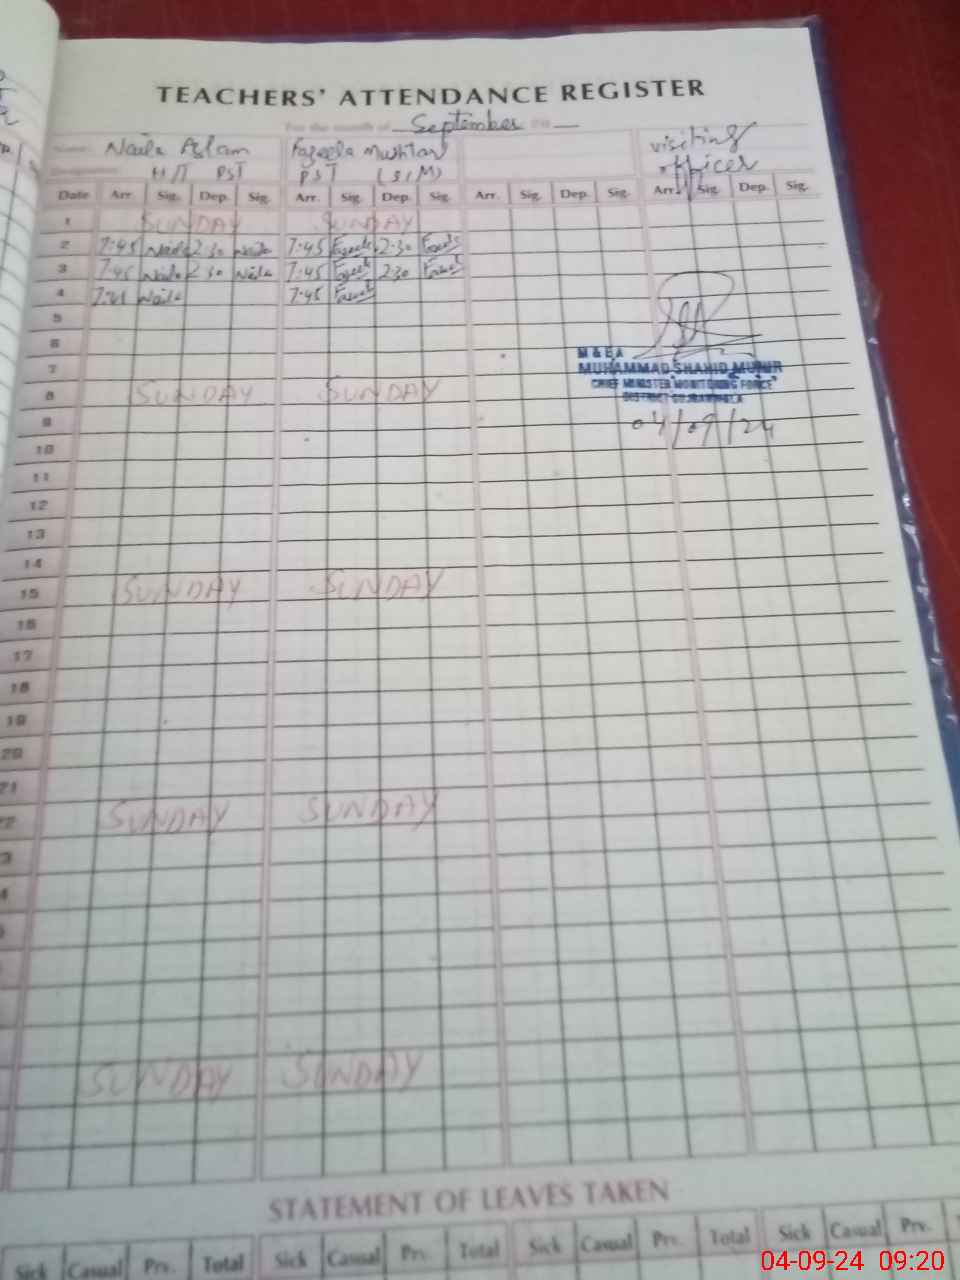 TEACHERS' ATTENDANCE REGISTER
For the month of September 20
Name: Naila Aslam Fazeela Mushtaq visiting
HT PST PST (SIM) officer
Date Arr. Sig. Dep. Sig. Arr. Sig. Dep. Sig. Arr. Sig. Dep. Sig. Arr. Sig. Dep. Sig.
1 SUNDAY SUNDAY
2 7:45 Naila 2:30 Naila 7:45 2:30
3 7:45 Naila 2:30 Naila 7:45 2:30
4 Naila 7:45
5
6
M & E A
7 MUHAMMAD SHAHID MUNIR
8 SUNDAY SUNDAY CHIEF MINISTER MONITORING FORCE
DISTRICT GUJRANWALA
9 04/09/24
10
11
12
13
14
15 SUNDAY SUNDAY
16
17
18
19
20
21
22 SUNDAY SUNDAY
3
4
SUNDAY SUNDAY
STATEMENT OF LEAVES TAKEN
Sick Casual Prv. Total Sick Casual Prv. Total Sick Casual Prv. Total Sick Casual Prv.
04-09-24 09:20